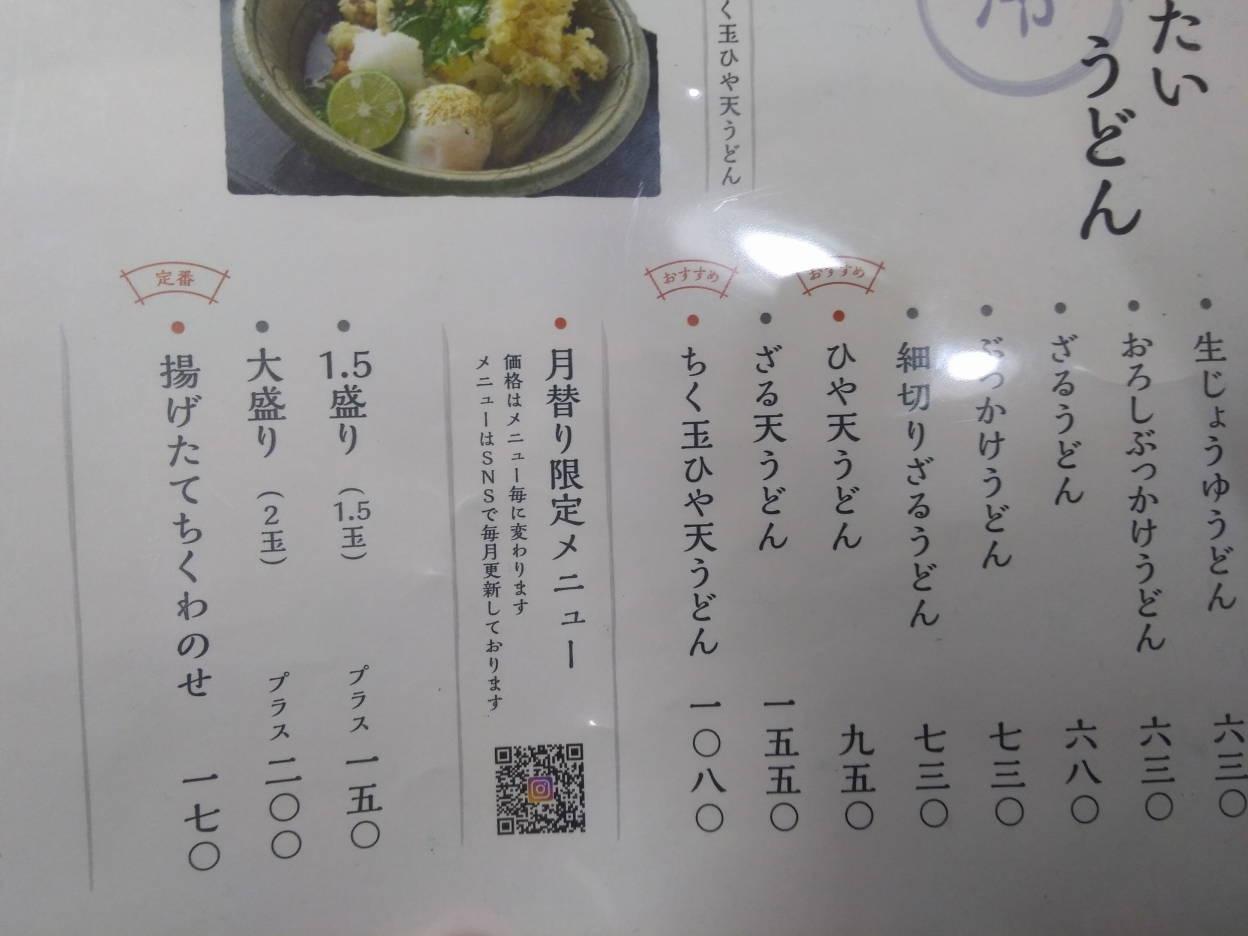 たい
うどん
生じょうゆうどん 六三〇
おろしぶっかけうどん 六三〇
ざるうどん 六八〇
ぶっかけうどん 七三〇
細切りざるうどん 七三〇
おすすめ
ひや天うどん 九五〇
ざる天うどん 一五五〇
おすすめ
ちく玉ひや天うどん 一〇八〇
く玉ひや天うどん
月替り限定メニュー
価格はメニュー毎に変わります
メニューはSNSで毎月更新しております
1.5盛り (1.5玉) プラス 一五〇
大盛り (2玉) プラス 二〇〇
定番
揚げたてちくわのせ 一七〇